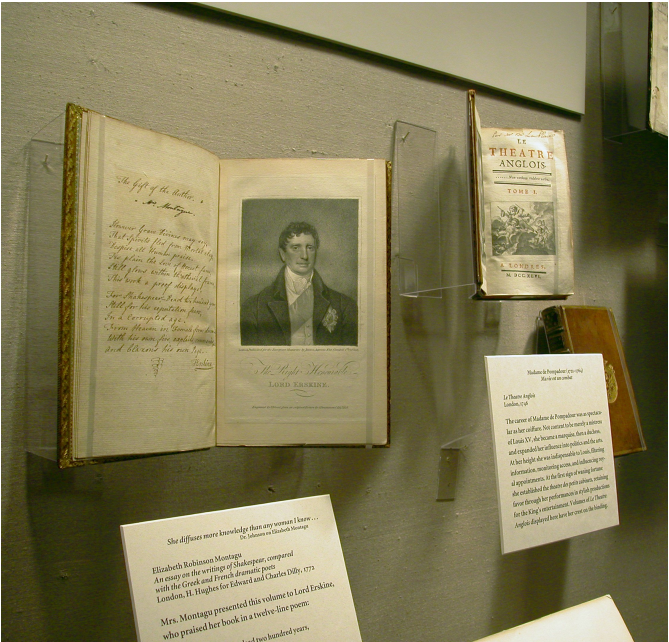 The Gift of the Author.
Mrs. Montagu
However Grave Divines may
That Spirits fled from
Inspire all human praise,
the Sun of
Still glows within
This work a proof displays
For Shakespear
Still for his reputation
In a corrupted age,
From Heaven in
With his own fire
and blazons his own
Erskine
The Right Honourable
LORD ERSKINE.
LE
THEATRE
ANGLOIS
TOME I.
A LONDRES,
M. DCC. XLVI.
Madame de Pompadour (1721–1764)
Ma vie est un combat
Le Theatre Anglois
London, 1746
The career of Madame de Pompadour was as spectacu-
lar as her coiffure. Not content to be merely a mistress
of Louis XV, she became a marquise, then a duchess,
and expanded her influence into politics and the arts.
At her height she was indispensable to Louis, filtering
information, monitoring access, and influencing roy-
al appointments. At the first sign of waning fortune
she established the theatre des petits cabinets, retaining
favor through her performances in stylish productions
for the King's entertainment. Volumes of Le Theatre
Anglois displayed here have her crest on the binding.
She diffuses more knowledge than any woman I know . . .
Dr. Johnson on Elizabeth Montagu
Elizabeth Robinson Montagu
An essay on the writings of Shakespear, compared
with the Greek and French dramatic poets
London, H. Hughes for Edward and Charles Dilly, 1772
Mrs. Montagu presented this volume to Lord Erskine,
who praised her book in a twelve-line poem:
had two hundred years,